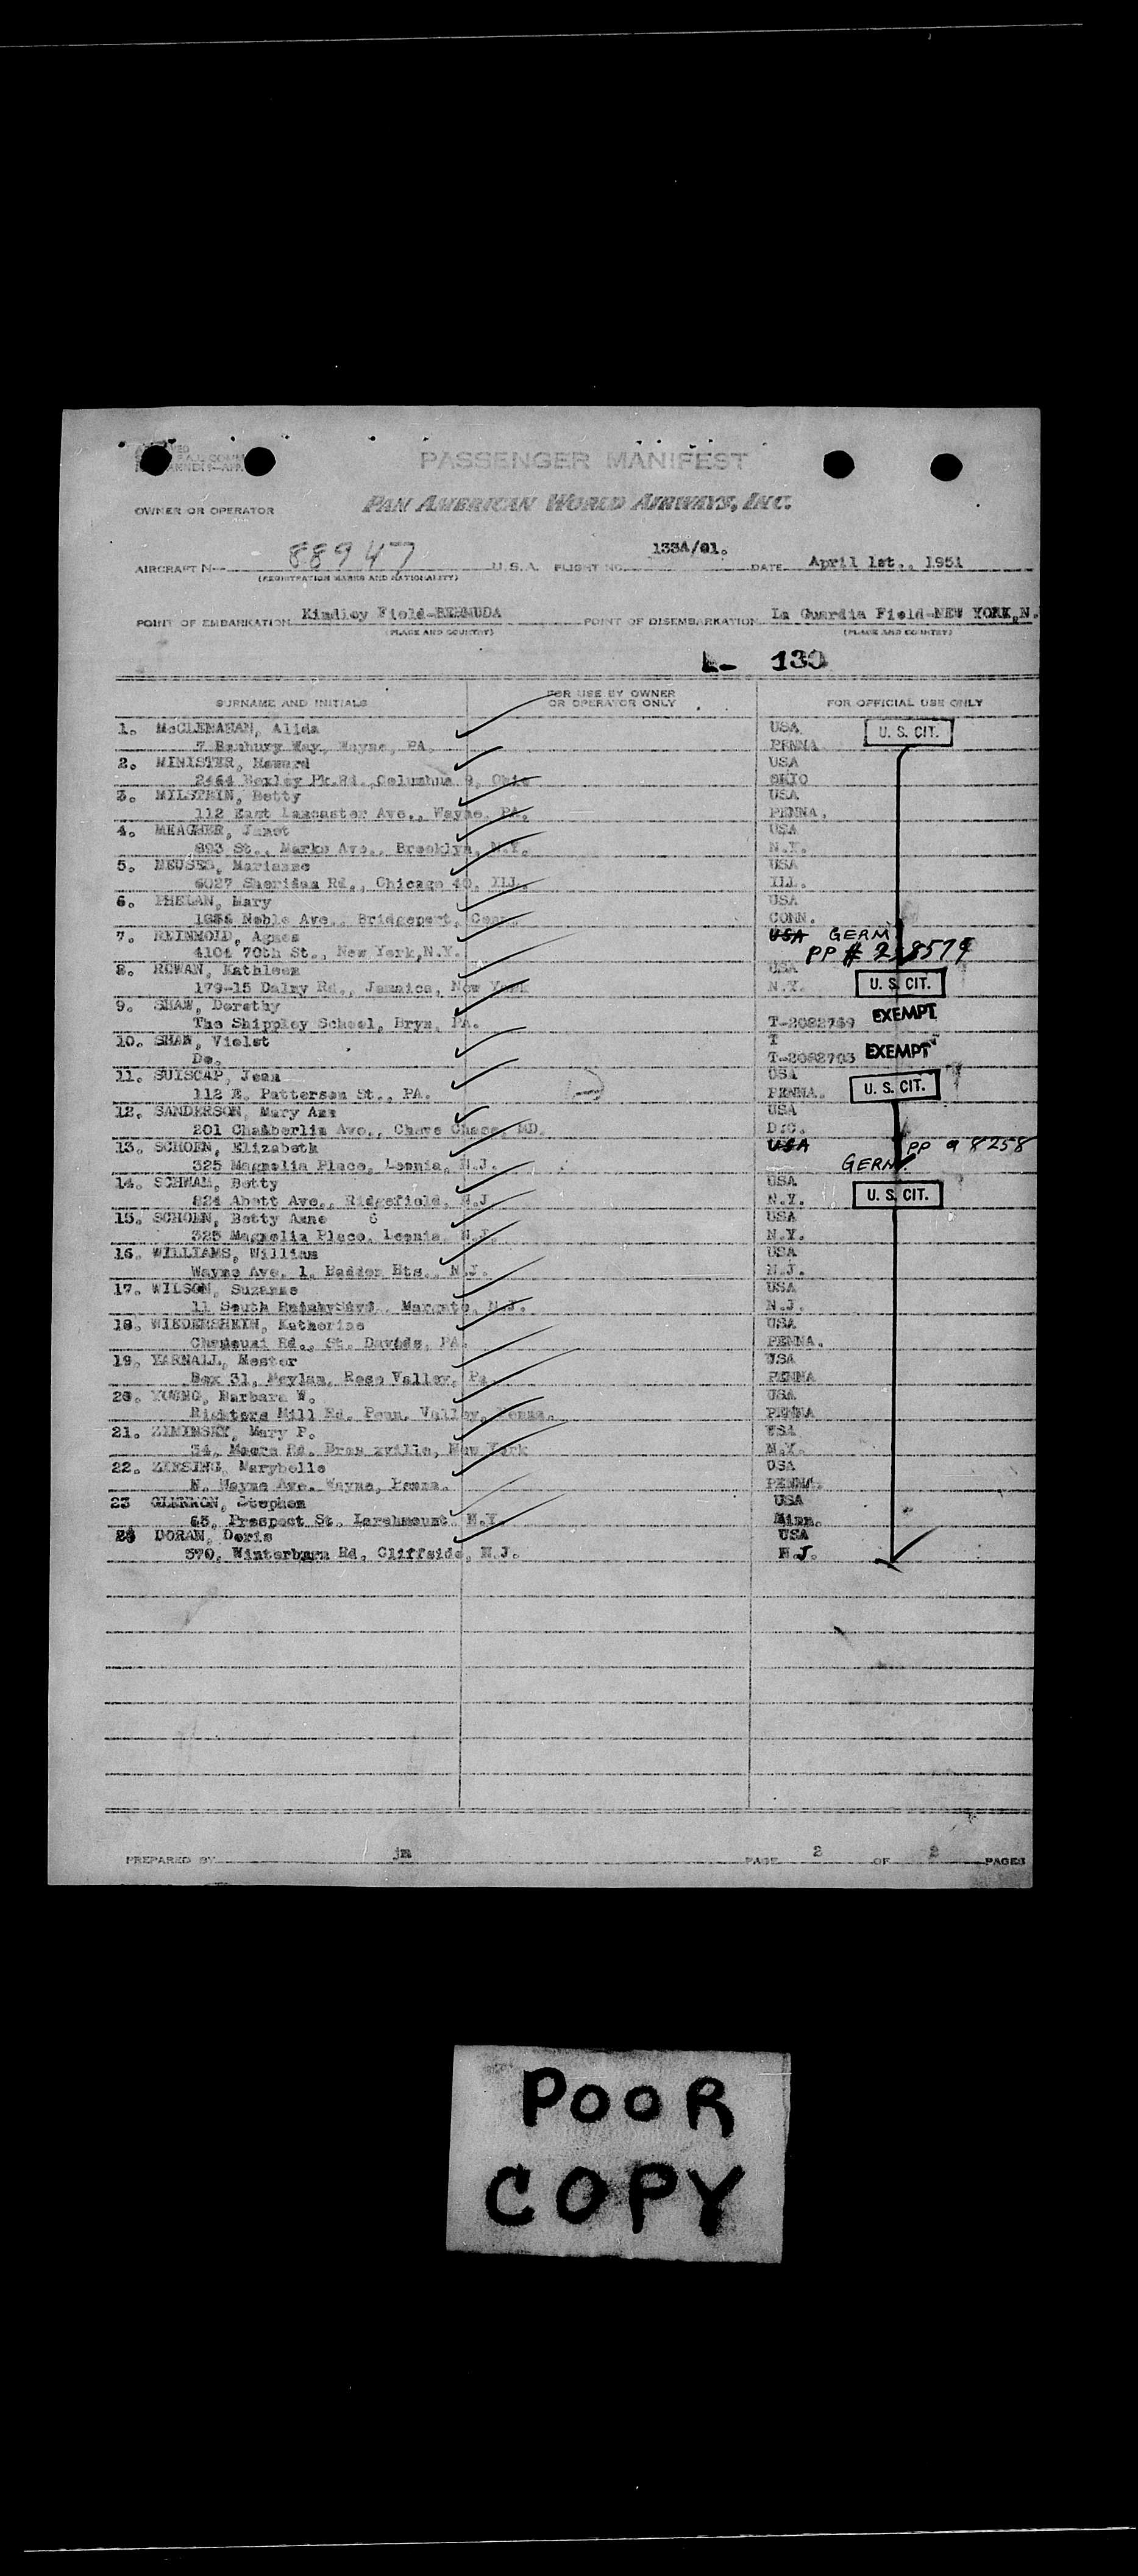 PASSENGER MANIFEST
PAN AMERICAN WORLD AIRWAYS, INC.
OWNER OR OPERATOR
AIRCRAFT N-- 88947 U.S.A. FLIGHT NO. 133A/01. DATE April 1st., 1951
(REGISTRATION MARKS AND NATIONALITY)
POINT OF EMBARKATION Kindley Field-BERMUDA POINT OF DISEMBARKATION La Guardia Field-NEW YORK,N.
(PLACE AND COUNTRY) (PLACE AND COUNTRY)
L- 130
SURNAME AND INITIALS FOR USE BY OWNER OR OPERATOR ONLY FOR OFFICIAL USE ONLY
1. McCLENAHAN, Alida USA U. S. CIT.
7 Banbury Way, Wayne, PA. PENNA
2. MINISTER, Howard USA
2464 Bexley Pk.Rd., Columbus 9, Ohio OHIO
3. MILSTEIN, Betty USA
112 East Lancaster Ave., Wayne, PA. PENNA.
4. MEAGHER, Janet USA
893 St., Marks Ave., Brooklyn, N.Y. N.Y.
5. MEUSES, Marianne USA
6027 Sheridan Rd., Chicago 40, ILL. ILL.
6. PHELAN, Mary USA
Noble Ave., Bridgeport, Conn. CONN.
7. REINHOLD, Agnes USA GERM
4104 70th St., New York,N.Y. PP # 218579
8. ROWAN, Kathleen USA
179-15 Dalny Rd., Jamaica, New York N.Y. U. S. CIT.
9. SHAW, Dorothy
The Shippley School, Bryn, PA. T-2082769 EXEMPT
10. SHAW, Violet T
Do. T-2082703 EXEMPT
11. SUISCAP, Jean USA
112 E. Patterson St., PA. PENNA. U. S. CIT.
12. SANDERSON, Mary Ann USA
201 Chamberlin Ave., Chevy Chase, MD. D.C.
13. SCHOEN, Elizabeth USA PP 98258
325 Magnolia Place, Leonia, N.J. GERM
14. SCHWAM, Betty USA
824 Abott Ave., Ridgefield, N.J N.Y. U. S. CIT.
15. SCHOEN, Betty Anne USA
325 Magnolia Place, Leonia, N.J. N.Y.
16. WILLIAMS, William USA
Wayne Ave. 1, Hadden Hts., N.J. N.J.
17. WILSON, Suzanne USA
11 South Margate, N.J. N.J.
18. WIEDERSHEIM, Katherine USA
Rd., St. Davids, PA. PENNA.
19. YARNALL, Hester USA
Box 31, Moylan, Rose Valley, Pa. PENNA
20. YOUNG, Barbara W. USA
Righters Mill Rd. Penn. Valley, Penna. PENNA
21. ZIMINSKY, Mary P. USA
34, Moore Rd. Bronxville, New York N.Y.
22. ZIESING, Marybelle USA
N. Wayne Ave. Wayne, Penna. PENNA.
23 GLENNON, Stephen USA
65, Prospect St. Larchmount, N.Y. Minn.
24 DORAN, Doris USA
570, Winterburn Rd, Cliffside, N.J. N.J.
PREPARED BY jm PAGE 2 OF 2 PAGES
POOR
COPY